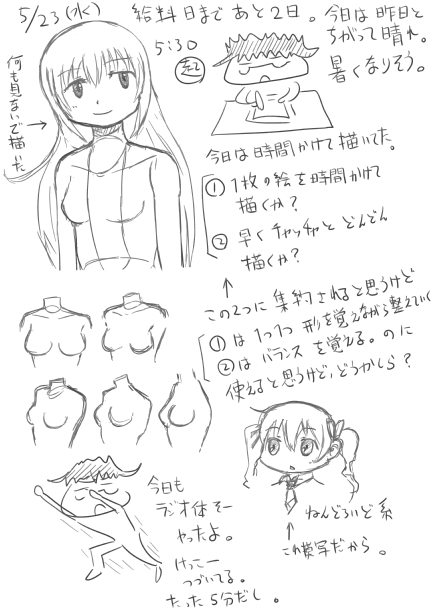 5/23(水)
給料日まであと2日。
今日は昨日と
ちがって晴れ。
暑くなりそう。
5:30
起
何も見ないで描いた
今日は時間かけて描いてた。
① 1枚の絵を時間かけて
描くか?
② 早くチャッチャとどんどん
描くか?
この2つに集約されると思うけど
①は1つ1つ形を覚えながら整えていく
②はバランスを覚える。のに
使えると思うけど、どうかしら?
今日も
ラジオ体そー
やったよ。
けっこー
つづいてる。
たった5分だし。
ねんどろいど系
これ模写だから。